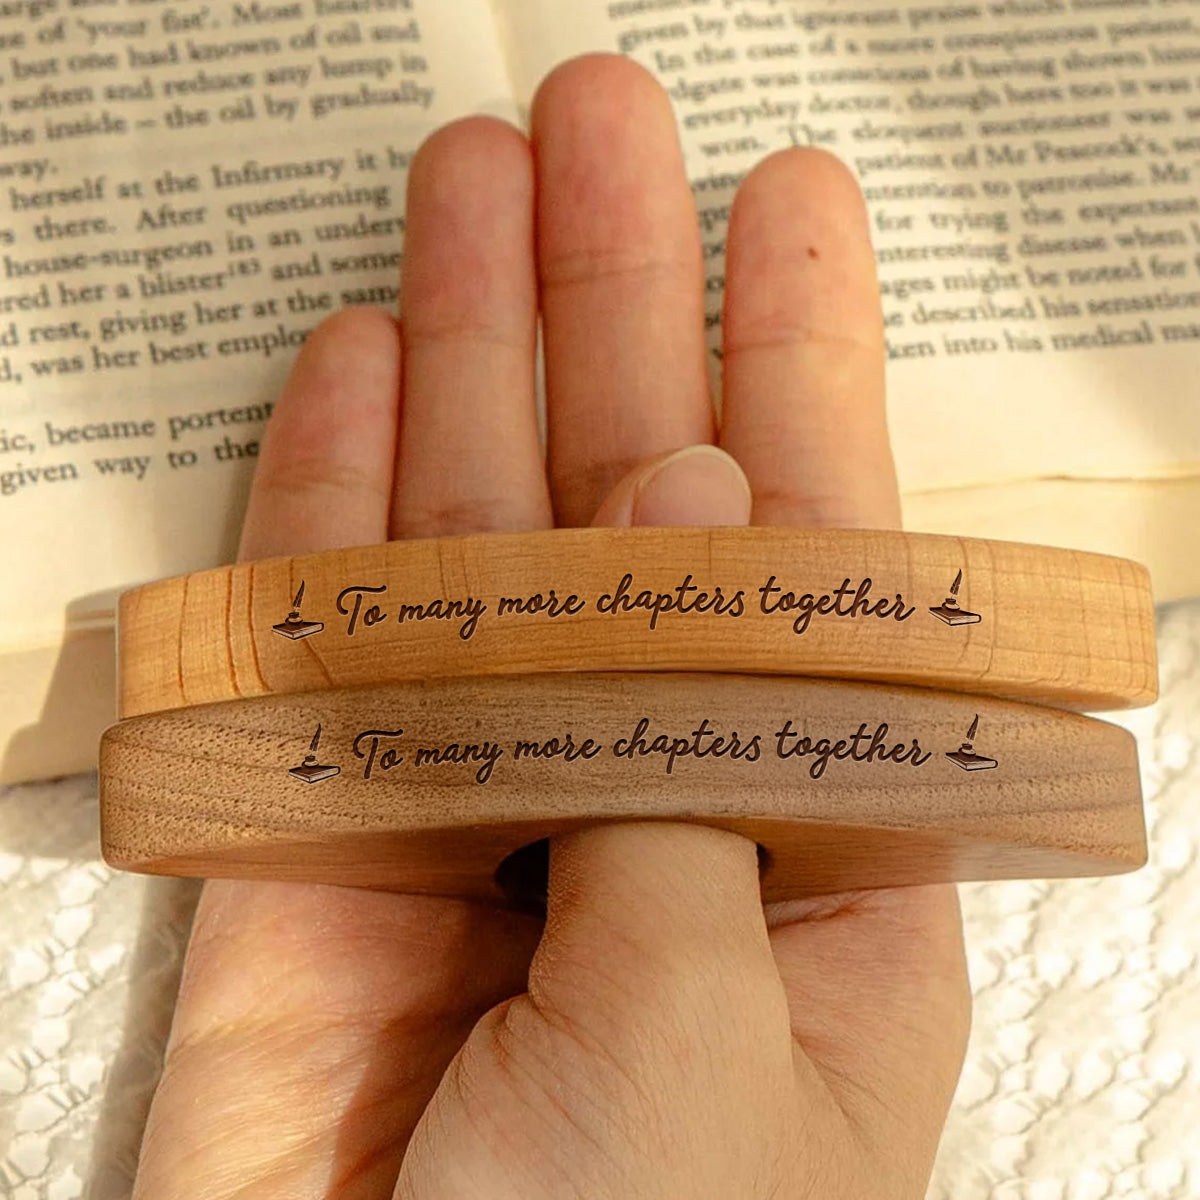 of 'your fist'. Most hearers
, but one had known of oil and
soften and reduce any lump in
the inside – the oil by gradually
way.
herself at the Infirmary it
there. After questioning
house-surgeon in an under
red her a blister¹⁸³ and some
d rest, giving her at the sam
d, was her best emplo
ic, became portent
given way to the
given by that ignorant praise which
In the case of a more conspicuous patient
dgate was conscious of having shown him
everyday doctor, though here too it was
won. The eloquent auctioneer was
patient of Mr Peacock's,
ntention to patronise. Mr
for trying the expectant
nteresting disease when
ages might be noted for
e described his sensation
ken into his medical ma
To many more chapters together
To many more chapters together